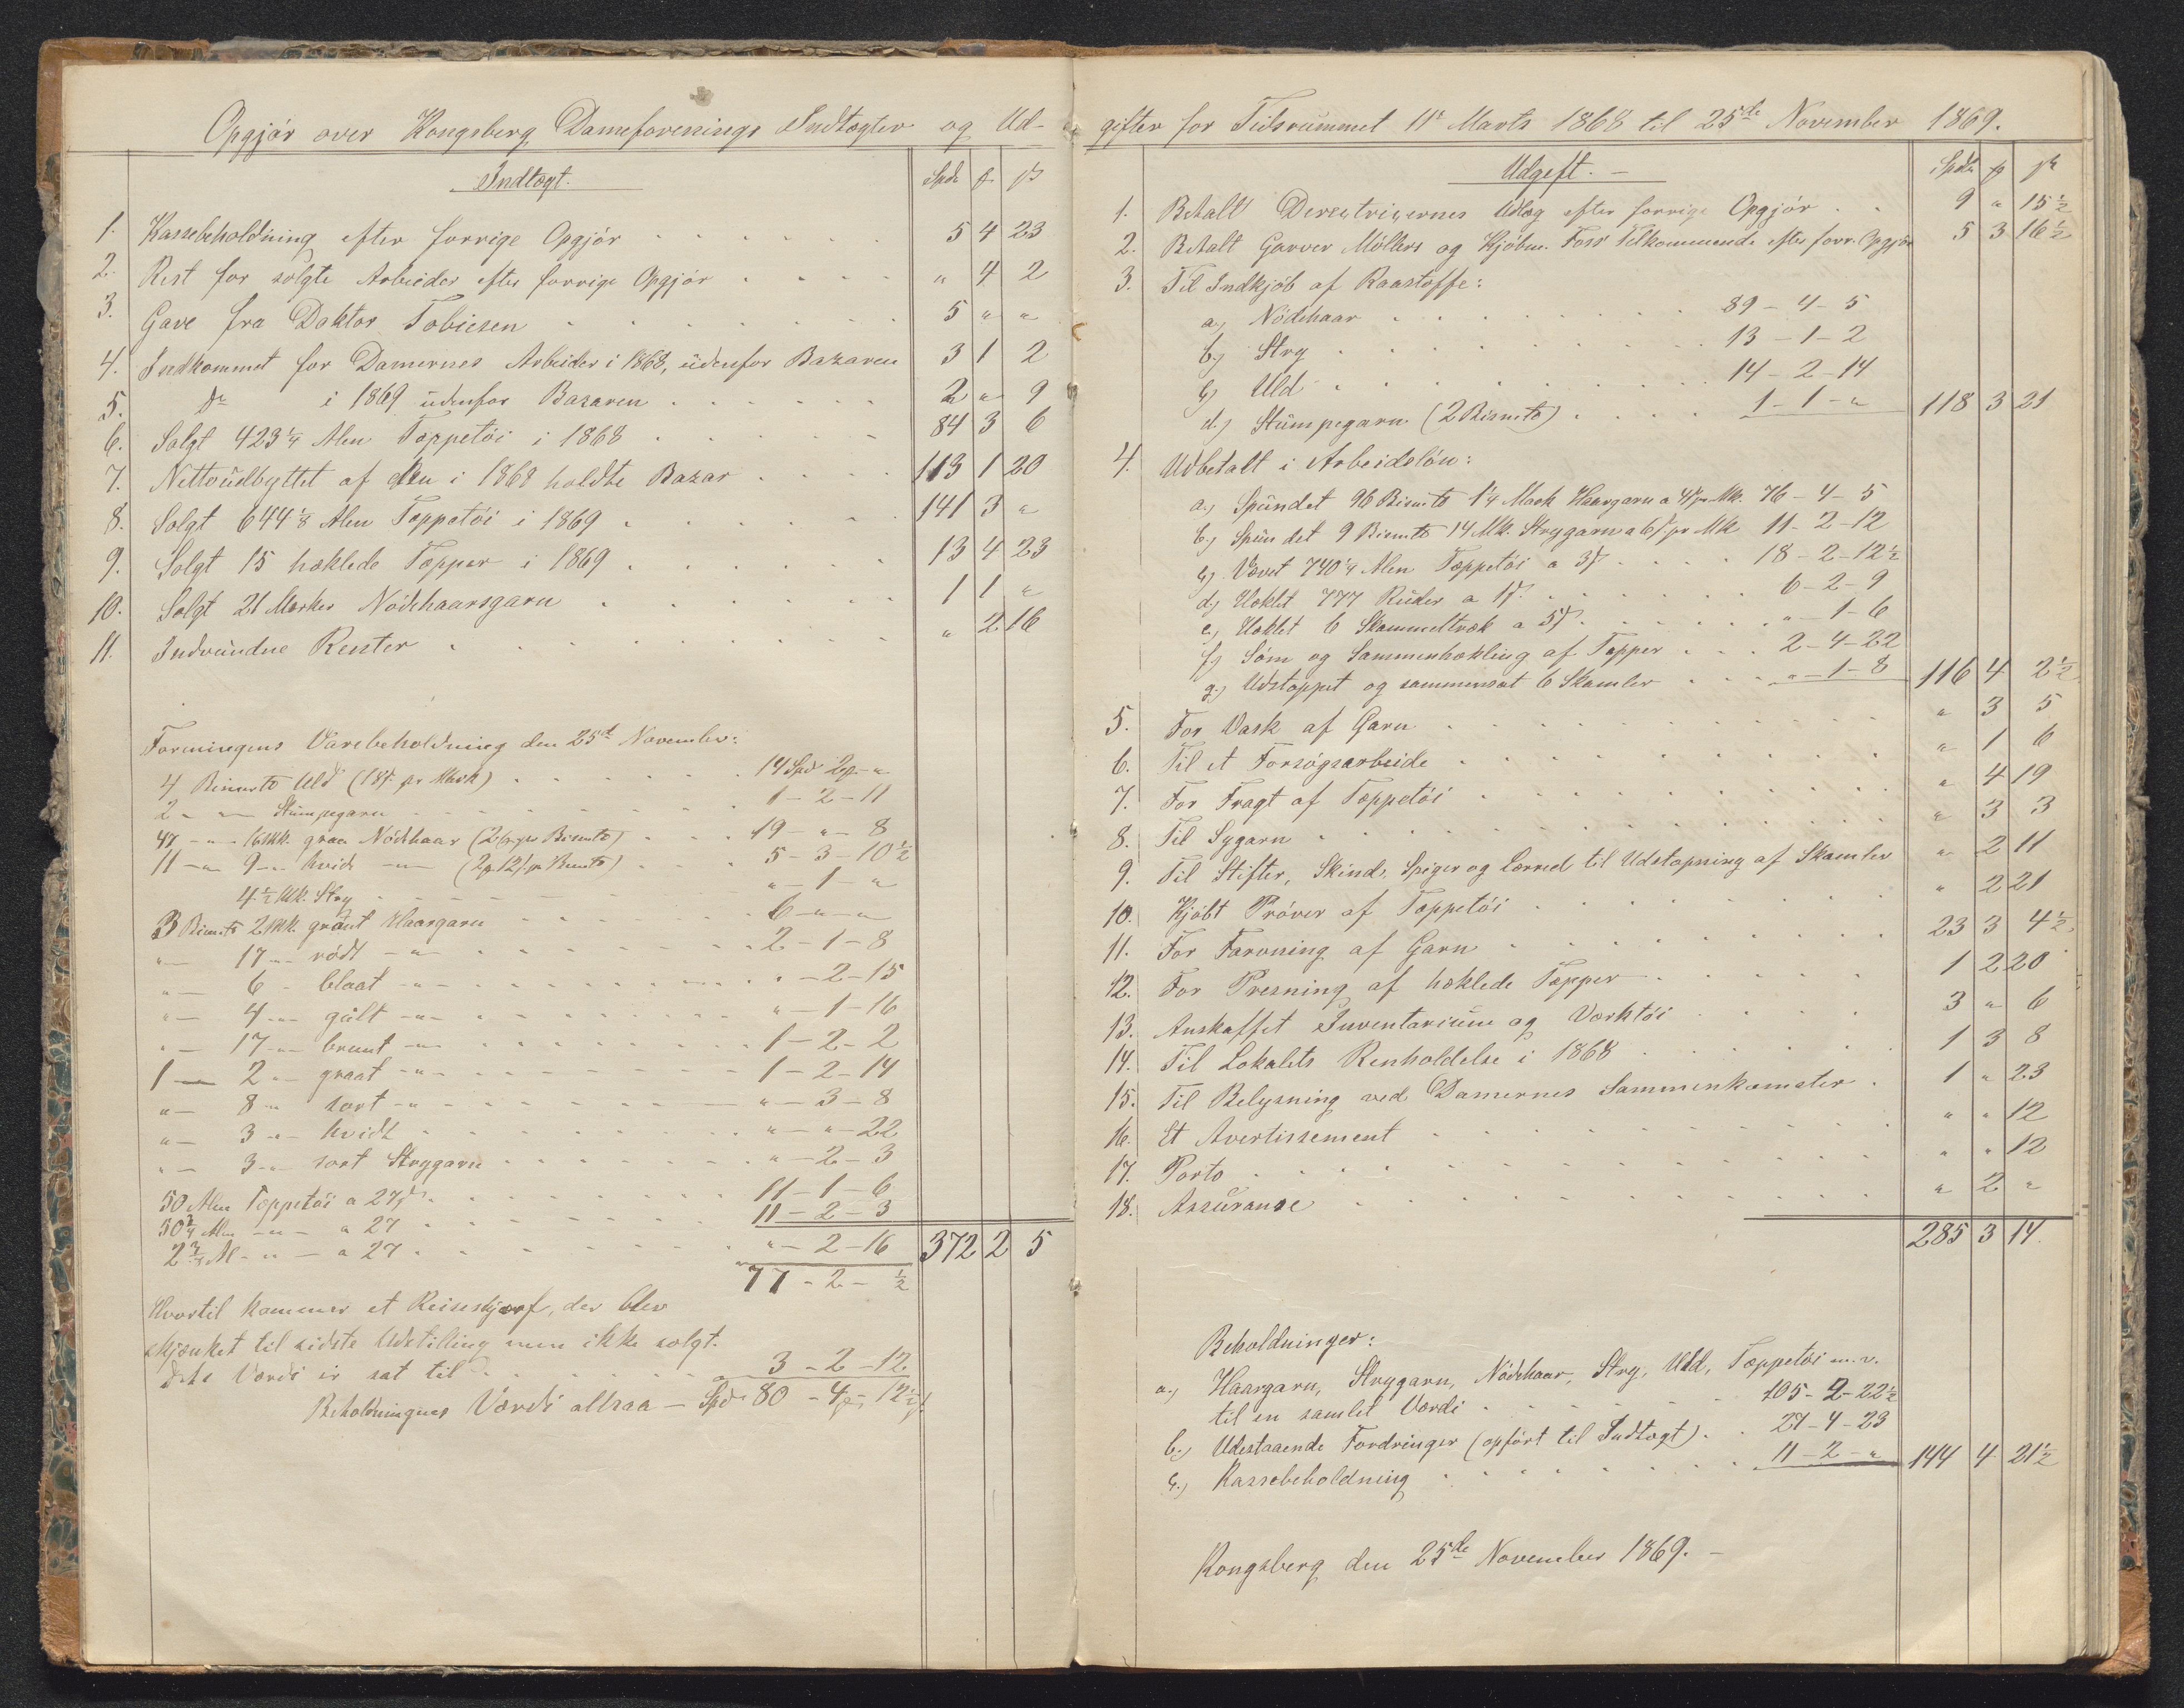 Opgjør over Kongsberg Dameforenings Indtægter og Ud-
Indtægt.
Spd ß
1. Kassebeholdning efter forrige Opgjør 5 4 23
2. Rest for solgte Arbeider efter forrige Opgjør " 4 2
3. Gave fra Doktor Tobiesen 5 " "
4. Indkommet for Damernes Arbeider i 1868, udenfor Bazaren 3 1 2
5. Do i 1869 udenfor Bazaren 2 " 9
6. Solgt 423 1/4 Alen Tæppetøi i 1868 84 3 6
7. Nettoudbyttet af den i 1868 holdte Bazar 113 1 20
8. Solgt 644 1/8 Alen Tæppetøi i 1869 141 3 "
9. Solgt 15 hæklede Tæpper i 1869 13 4 23
10. Solgt 21 Marker Nødehaarsgarn 1 1 "
11. Indvundne Renter " 2 16
Foreningens Varebeholdning den 25d November:
4 Bismto Uld (18ß pr Mark) 14 Spd 2 - "
2 " — Stumpegarn 1 - 2 - 11
47 - " - 16 Mk. graa Nødehaar (2 pr Bismto) 19 - " - 8
11 - " 9 - " hvidt - " - (2 12ß pr Bismto) 5 - 3 - 10 1/2
4 1/2 Mk. Stry " - 1 - "
3 Bismto 2 Mk. grønt Haargarn 6 - " - "
" - 17 - " - rødt - " - 2 - 1 - 8
" - 6 - blaat - " - " - 2 - 15
" - 4 - " - gult - " - " - 1 - 16
" - 17 - " - brunt - " - 1 - 2 - 2
1 — 2 " - graat - " - 1 - 2 - 14
" - 8 - " sort - " - " - 3 - 8
" - 3 - " - hvidt " - " - 22
" - 3 - " - sort Strygarn " - 2 - 3
50 Alen Tæppetøi a 27ß 11 - 1 - 6
50 3/4 Alen - " - a 27 11 - 2 - 3
2 3/4 Al - " - a 27 " - 2 - 16 372 2 5
77 - 2 - 1/2
Hvortil kommer et Reiseskjærf, der blev
skjænket til sidste Udstilling men ikke solgt.
dets Værdi er sat til 3 - 2 - 12
Beholdningens Værdi altsaa — Spd 80 - 4 - 12 1/2
gifter for Tidsrummet 11te Marts 1868 til 25de November 1869.
Udgift. -
Spd ß
1. Betalt Derectricernes Udlæg efter forrige Opgjør 9 " 15 1/2
2. Betalt Garver Møllers og Kjøbm. Foss' Tilkommende efter forr. Opgjør 5 3 16 1/2
3. Til Indkjøb af Raastoffe:
a.) Nødehaar 89 - 4 - 5
b.) Stry 13 - 1 - 2
c.) Uld 14 - 2 - 14
d.) Stumpegarn (2 Bismto) 1 - 1 - " 118 3 21
4. Udbetalt i Arbeidsløn:
a.) Spundet 96 Bismto 1 1/4 Mark Haargarn a 4ß pr Mk. 76 - 4 - 5
b.) Spundet 9 Bismto 14 Mk. Strygarn a 6ß pr Mk 11 - 2 - 12
c.) Vævet 740 1/4 Alen Tæppetøi a 3ß 18 - 2 - 12 1/2
d.) Hæklet 777 Ruder a 1ß 6 - 2 - 9
e.) Hæklet 6 Skammeltræk a 5ß " - 1 - 6
f.) Søm og Sammenhækling af Tæpper 2 - 4 - 22
g.) Udstoppet og sammensat 6 Skamler " - 1 - 8 116 4 2 1/2
5. For Vask af Garn " 3 5
6. Til et Forsøgsarbeide " 1 6
7. For Fragt af Tæppetøi " 4 19
8. Til Sygarn " 3 3
9. Til Stifter, Skind, Spiger og Lærred til Udstopning af Skamler " 2 11
10. Kjøbt Prøver af Tæppetøi " 2 21
11. For Farvning af Garn 23 3 4 1/2
12. For Presning af hæklede Tæpper 1 2 20
13. Anskaffet Inventarium og Værktøi 3 " 6
14. Til Lokalets Renholdelse i 1868 1 3 8
15. Til Belysning ved Damernes Sammenkomster 1 " 23
16. Et Avertissement " " 12
17. Porto " " 12
18. Assurance " 2 "
285 3 14
Beholdninger:
a.) Haargarn, Strygarn, Nødehaar, Stry, Uld, Tæppetøi m. v.
til en samlet Værdi 105 - 2 - 22 1/2
b.) Udestaaende Fordringer (opført til Indtægt) 27 - 4 - 23
c.) Kassebeholdning 11 - 2 - " 144 4 21 1/2
Kongsberg den 25de November 1869. -